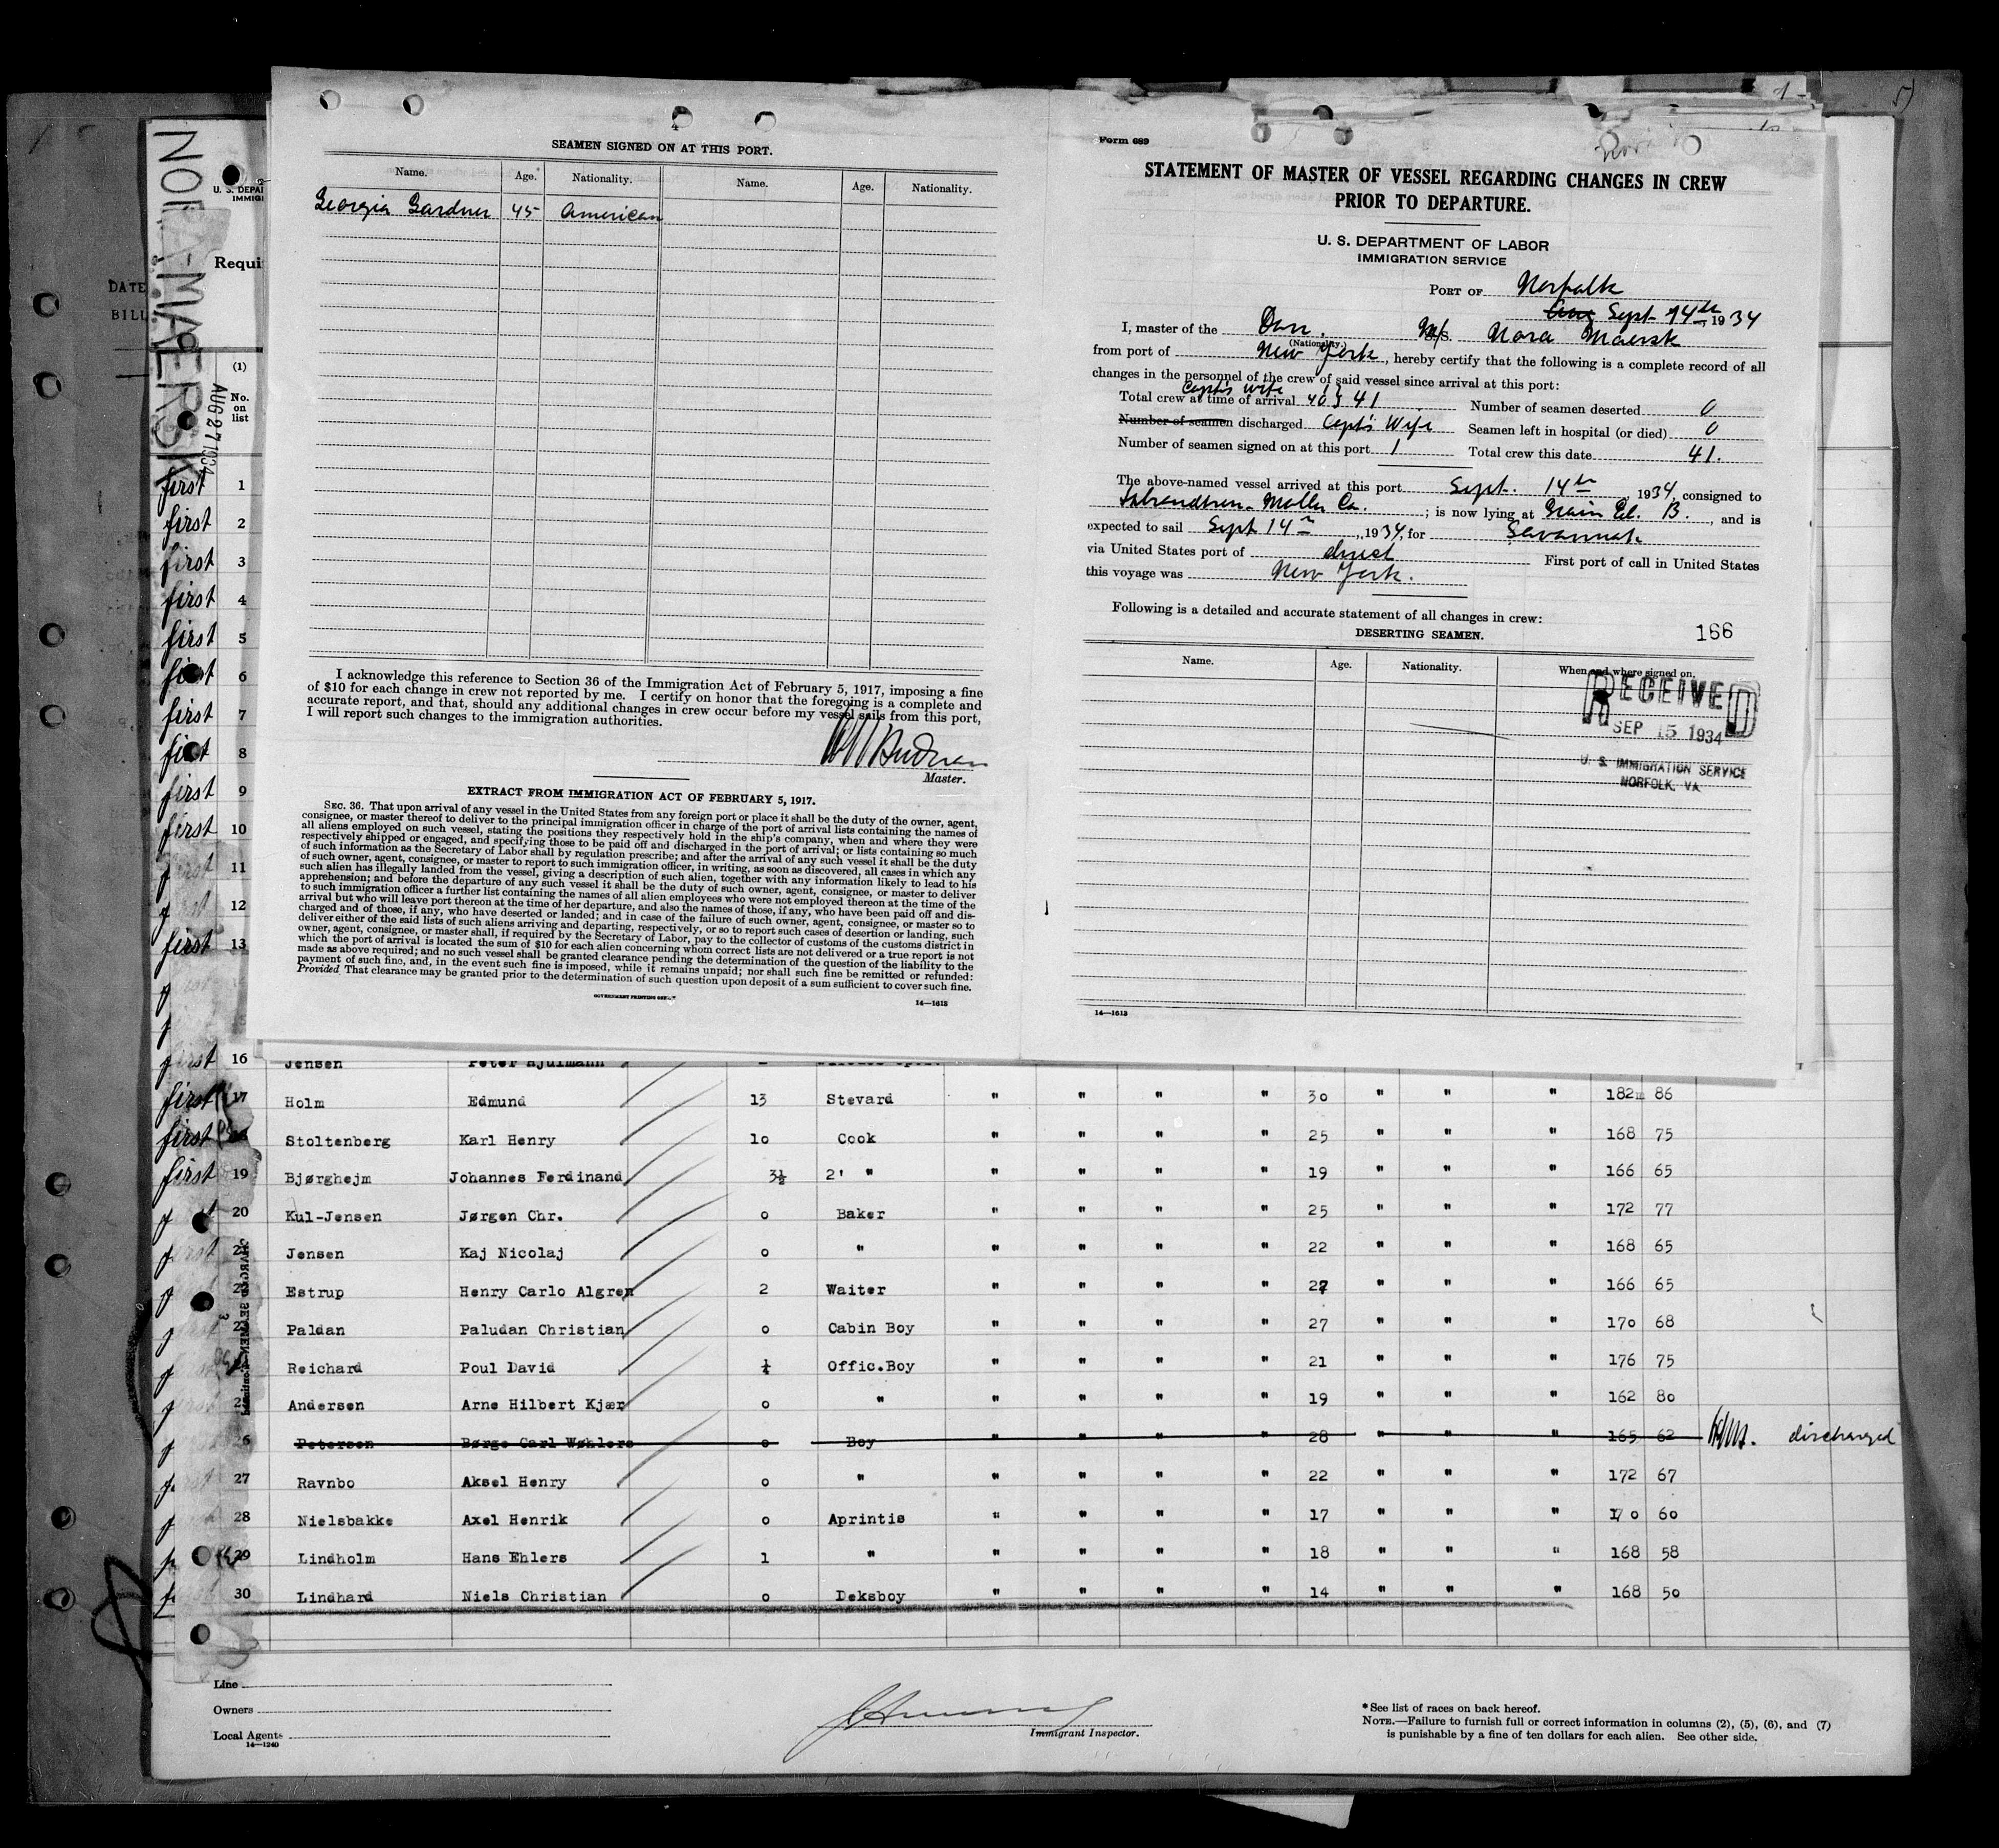 NORA MAERSK
AUG 27 1934
U. S. DEPAR
IMMIGR
Requir
DATE
BILL
(1)
No.
on
list
4
SEAMEN SIGNED ON AT THIS PORT.
Name. Age. Nationality. Name. Age. Nationality.
Georgia Gardner 45 American
I acknowledge this reference to Section 36 of the Immigration Act of February 5, 1917, imposing a fine
of $10 for each change in crew not reported by me. I certify on honor that the foregoing is a complete and
accurate report, and that, should any additional changes in crew occur before my vessel sails from this port,
I will report such changes to the immigration authorities.
Master.
EXTRACT FROM IMMIGRATION ACT OF FEBRUARY 5, 1917.
SEC. 36. That upon arrival of any vessel in the United States from any foreign port or place it shall be the duty of the owner, agent,
consignee, or master thereof to deliver to the principal immigration officer in charge of the port of arrival lists containing the names of
all aliens employed on such vessel, stating the positions they respectively hold in the ship's company, when and where they were
respectively shipped or engaged, and specifying those to be paid off and discharged in the port of arrival; or lists containing so much
of such information as the Secretary of Labor shall by regulation prescribe; and after the arrival of any such vessel it shall be the duty
of such owner, agent, consignee, or master to report to such immigration officer, in writing, as soon as discovered, all cases in which any
such alien has illegally landed from the vessel, giving a description of such alien, together with any information likely to lead to his
apprehension; and before the departure of any such vessel it shall be the duty of such owner, agent, consignee, or master to deliver
to such immigration officer a further list containing the names of all alien employees who were not employed thereon at the time of the
arrival but who will leave port thereon at the time of her departure, and also the names of those, if any, who have been paid off and dis-
charged and of those, if any, who have deserted or landed; and in case of the failure of such owner, agent, consignee, or master so to
deliver either of the said lists of such aliens arriving and departing, respectively, or so to report such cases of desertion or landing, such
owner, agent, consignee, or master shall, if required by the Secretary of Labor, pay to the collector of customs of the customs district in
which the port of arrival is located the sum of $10 for each alien concerning whom correct lists are not delivered or a true report is not
made as above required; and no such vessel shall be granted clearance pending the determination of the question of the liability to the
payment of such fine, and, in the event such fine is imposed, while it remains unpaid; nor shall such fine be remitted or refunded:
Provided That clearance may be granted prior to the determination of such question upon deposit of a sum sufficient to cover such fine.
GOVERNMENT PRINTING OFFICE
14—1613
Form 689
STATEMENT OF MASTER OF VESSEL REGARDING CHANGES IN CREW
PRIOR TO DEPARTURE.
U. S. DEPARTMENT OF LABOR
IMMIGRATION SERVICE
PORT OF Norfolk
Aug Sept 14th, 1934
I, master of the Dan. M/S. Nora Maersk
(Nationality.)
from port of New York, hereby certify that the following is a complete record of all
changes in the personnel of the crew of said vessel since arrival at this port:
Capt's wife
Total crew at time of arrival 40 } 41 Number of seamen deserted 0
Number of seamen discharged Capt's Wife Seamen left in hospital (or died) 0
Number of seamen signed on at this port 1 Total crew this date 41.
The above-named vessel arrived at this port Sept. 14th, 1934, consigned to
Isbrandtsen-Moller Co.; is now lying at Grain El. B., and is
expected to sail Sept 14th, 1934, for Savannah
via United States port of direct First port of call in United States
this voyage was New York.
Following is a detailed and accurate statement of all changes in crew:
DESERTING SEAMEN. 166
Name. Age. Nationality. When and where signed on.
RECEIVED
SEP 15 1934
U. S. IMMIGRATION SERVICE
NORFOLK, VA.
14—1613
first 1
first 2
first 3
first 4
first 5
first 6
first 7
first 8
first 9
first 10
first 11
first 12
first 13
16 Jensen Peter Hjulmann
first 17 Holm Edmund 13 Stevard " " " " 30 " " " 182 86
first Stoltenberg Karl Henry 10 Cook " " " " 25 " " " 168 75
first 19 Bjørghejm Johannes Ferdinand 3½ 2' " " " " " 19 " " " 166 65
20 Kul-Jensen Jørgen Chr. 0 Baker " " " " 25 " " " 172 77
21 Jensen Kaj Nicolaj 0 " " " " " 22 " " " 168 65
22 Estrup Henry Carlo Algren 2 Waiter " " " " 22 " " " 166 65
23 Paldan Paludan Christian 0 Cabin Boy " " " " 27 " " " 170 68
Reichard Poul David Offic.Boy " " " " 21 " " " 176 75
25 Andersen Arne Hilbert Kjær 0 " " " " " 19 " " " 162 80
26 Petersen Børge Carl Wøhlers 0 Boy " " " " 28 " " " 165 62 discharged
27 Ravnbo Aksel Henry 0 " " " " " 22 " " " 172 67
28 Nielsbakke Axel Henrik 0 Aprintis " " " " 17 " " " 170 60
29 Lindholm Hans Ehlers 1 " " " " " 18 " " " 168 58
30 Lindhard Niels Christian 0 Deksboy " " " " 14 " " " 168 50
Line
Owners
Local Agents
14—1240
Immigrant Inspector.
*See list of races on back hereof.
NOTE.—Failure to furnish full or correct information in columns (2), (5), (6), and (7)
is punishable by a fine of ten dollars for each alien. See other side.